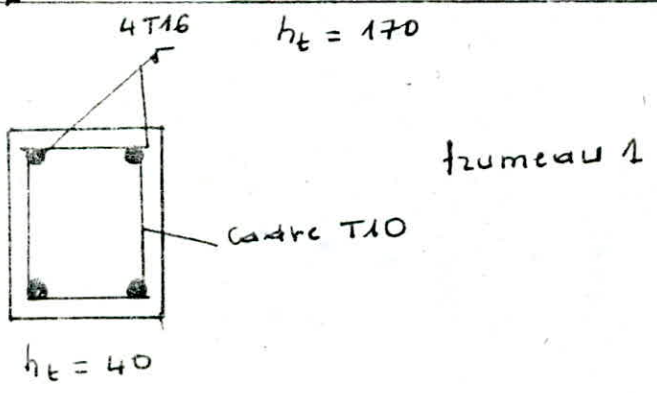 4T16
ht = 170
trumeau 1
Cadre T10
ht = 40